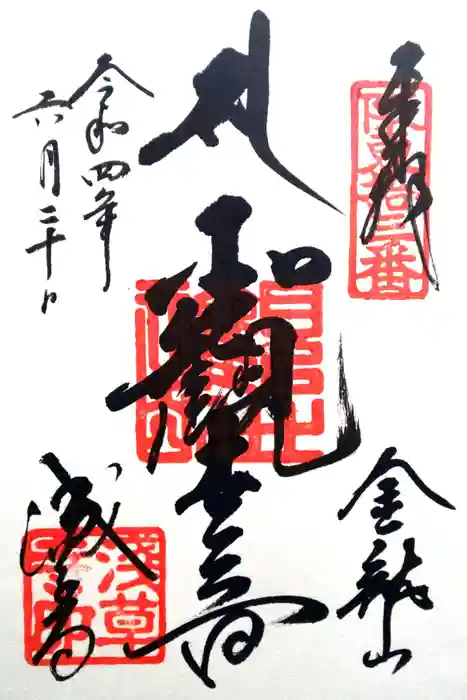 奉拝
坂東拾三番
金龍山
聖観世音
令和四年
六月二十日
浅草寺
浅草寺印